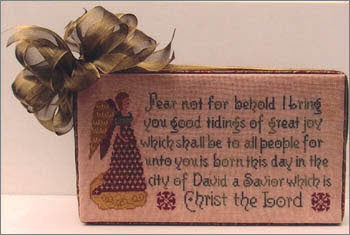 Fear not for behold I bring
you good tidings of great joy
which shall be to all people for
unto you is born this day in the
city of David a Savior which is
Christ the Lord